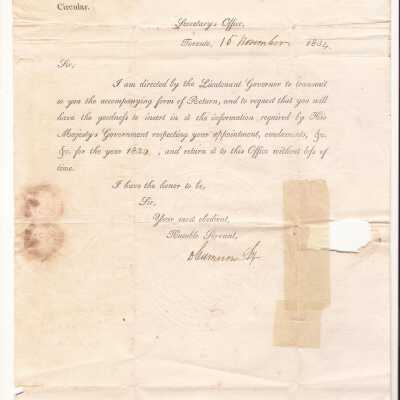 Circular.
Secretary's Office,
Toronto, 15 November 1834
Sir,
I am directed by the Lieutenant Governor to transmit
to you the accompanying form of Return, and to request that you will
have the goodness to insert in it the information required by His
Majesty's Government respecting your appointment, emoluments, &c.
&c. for the year 1834, and return it to this Office without loss of
time.
I have the honor to be,
Sir,
Your most obedient,
Humble Servant,